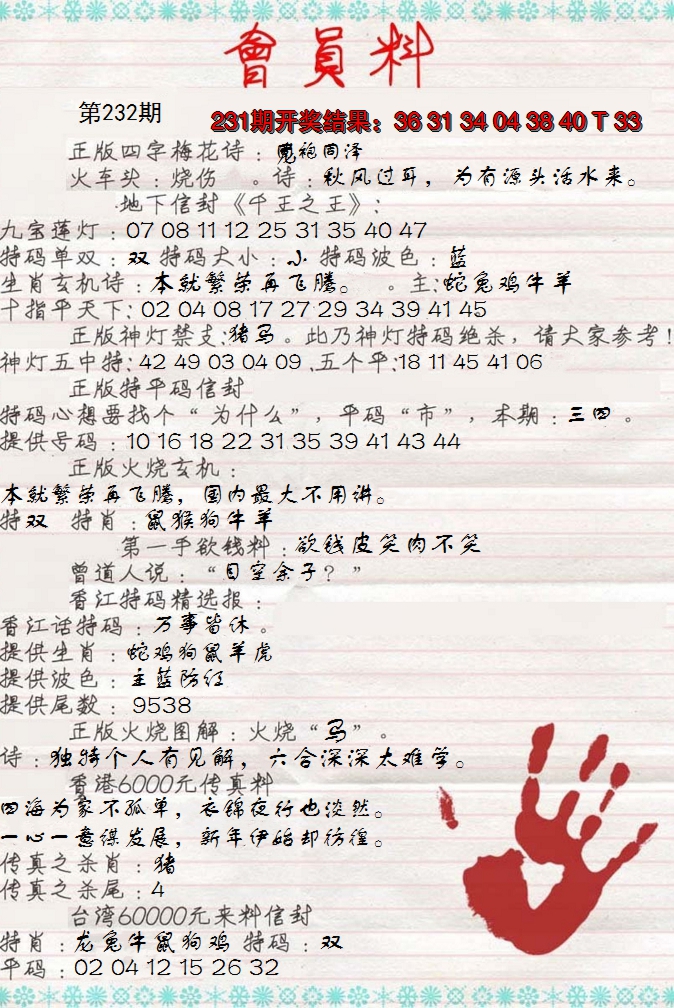 會員料
第232期
231期开奖结果：36 31 34 04 38 40 T 33
正版四字梅花诗：袍同泽
火车头：烧伤 。诗：秋风过耳，为有源头活水来。
地下信封《千王之王》：
九宝莲灯：07 08 11 12 25 31 35 40 47
特码单双：双 特码大小：小 特码波色：蓝
生肖玄机诗：本就繁荣再飞腾。 。主:蛇兔鸡牛羊
十指平天下: 02 04 08 17 27 29 34 39 41 45
正版神灯禁支:猪马。此乃神灯特码绝杀，请大家参考!
神灯五中特: 42 49 03 04 09 .五个平:18 11 45 41 06
正版特平码信封
特码心想要找个“为什么”，平码“市”，本期：三四。
提供号码：10 16 18 22 31 35 39 41 43 44
正版火烧玄机：
本就繁荣再飞腾，国内最大不用讲。
特双 特肖：鼠猴狗牛羊
第一手欲钱料：欲钱皮笑肉不笑
曾道人说：“目空余子？”
香江特码精选报：
香江话特码：万事皆休。
提供生肖：蛇鸡狗鼠羊虎
提供波色：主蓝防红
提供尾数：9538
正版火烧图解：火烧“马”。
诗：独特个人有见解，六合深深太难学。
香港6000元传真料
四海为家不孤单，衣锦夜行也淡然。
一心一意谋发展，新年伊始却彷徨。
传真之杀肖：猪
传真之杀尾：4
台湾60000元来料信封
特肖：龙兔牛鼠狗鸡 特码：双
平码：02 04 12 15 26 32